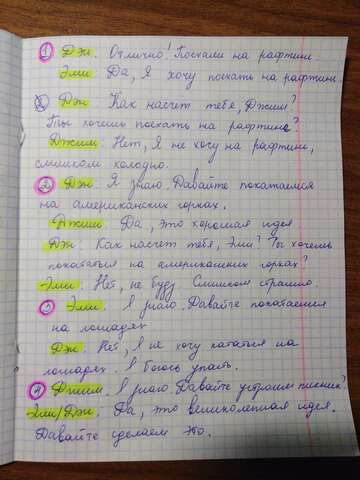 1 Дж. Отлично! Поехали на рафтинг.
Эми. Да, я хочу поехать на рафтинг.
2 Дж. Как насчет тебя, Джим?
Ты хочешь поехать на рафтинг?
Джим. Нет, я не хочу на рафтинг,
слишком холодно.
2 Дж. Я знаю. Давайте покатаемся
на американских горках.
Джим. Да, это хорошая идея
Дж. Как насчет тебя, Эми? Ты хочешь
покататься на американских горках?
Эми. Нет, не буду. Слишком страшно.
3 Эми. Я знаю. Давайте покатаемся
на лошадях
Дж. Нет, я не хочу кататься на
лошадях. Я боюсь упасть.
4 Джим. Я знаю. Давайте устроим пикник?
Эми/Дж. Да, это великолепная идея.
Давайте сделаем это.